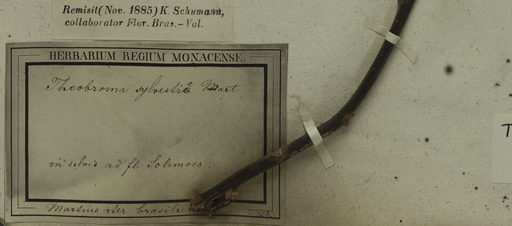 Remisit (Nov. 1885) K. Schumann,
collaborator Flor. Bras.-Vol.
HERBARIUM REGIUM MONACENSE.
Theobroma sylvestris Mart.
in silvis ad fl. Solimoes
Martius iter brasiliense
T